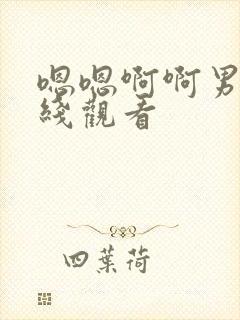 嗯嗯啊啊男
綫觀看
四葉荷